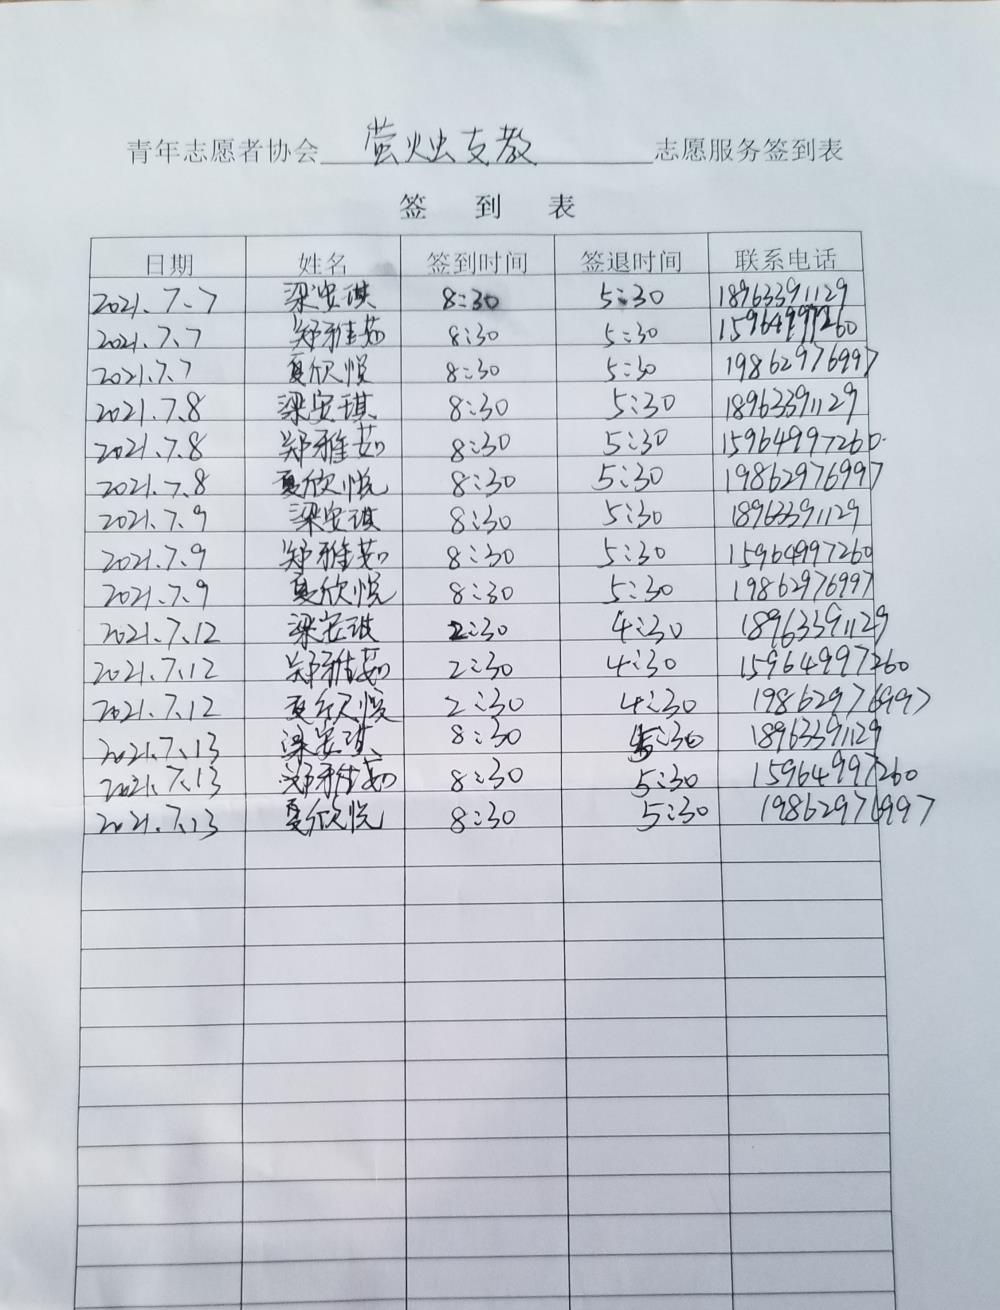 青年志愿者协会 萤烛支教 志愿服务签到表
签 到 表
日期 姓名 签到时间 签退时间 联系电话
2021.7.7 梁安琪 8:30 5:30 18963391129
2021.7.7 郑雅茹 8:30 5:30 15964997260
2021.7.7 夏欣悦 8:30 5:30 19862976997
2021.7.8 梁安琪 8:30 5:30 18963391129
2021.7.8 郑雅茹 8:30 5:30 15964997260
2021.7.8 夏欣悦 8:30 5:30 19862976997
2021.7.9 梁安琪 8:30 5:30 18963391129
2021.7.9 郑雅茹 8:30 5:30 15964997260
2021.7.9 夏欣悦 8:30 5:30 19862976997
2021.7.12 梁安琪 2:30 4:30 18963391129
2021.7.12 郑雅茹 2:30 4:30 15964997260
2021.7.12 夏欣悦 2:30 4:30 19862976997
2021.7.13 梁安琪 8:30 5:30 18963391129
2021.7.13 郑雅茹 8:30 5:30 15964997260
2021.7.13 夏欣悦 8:30 5:30 19862976997